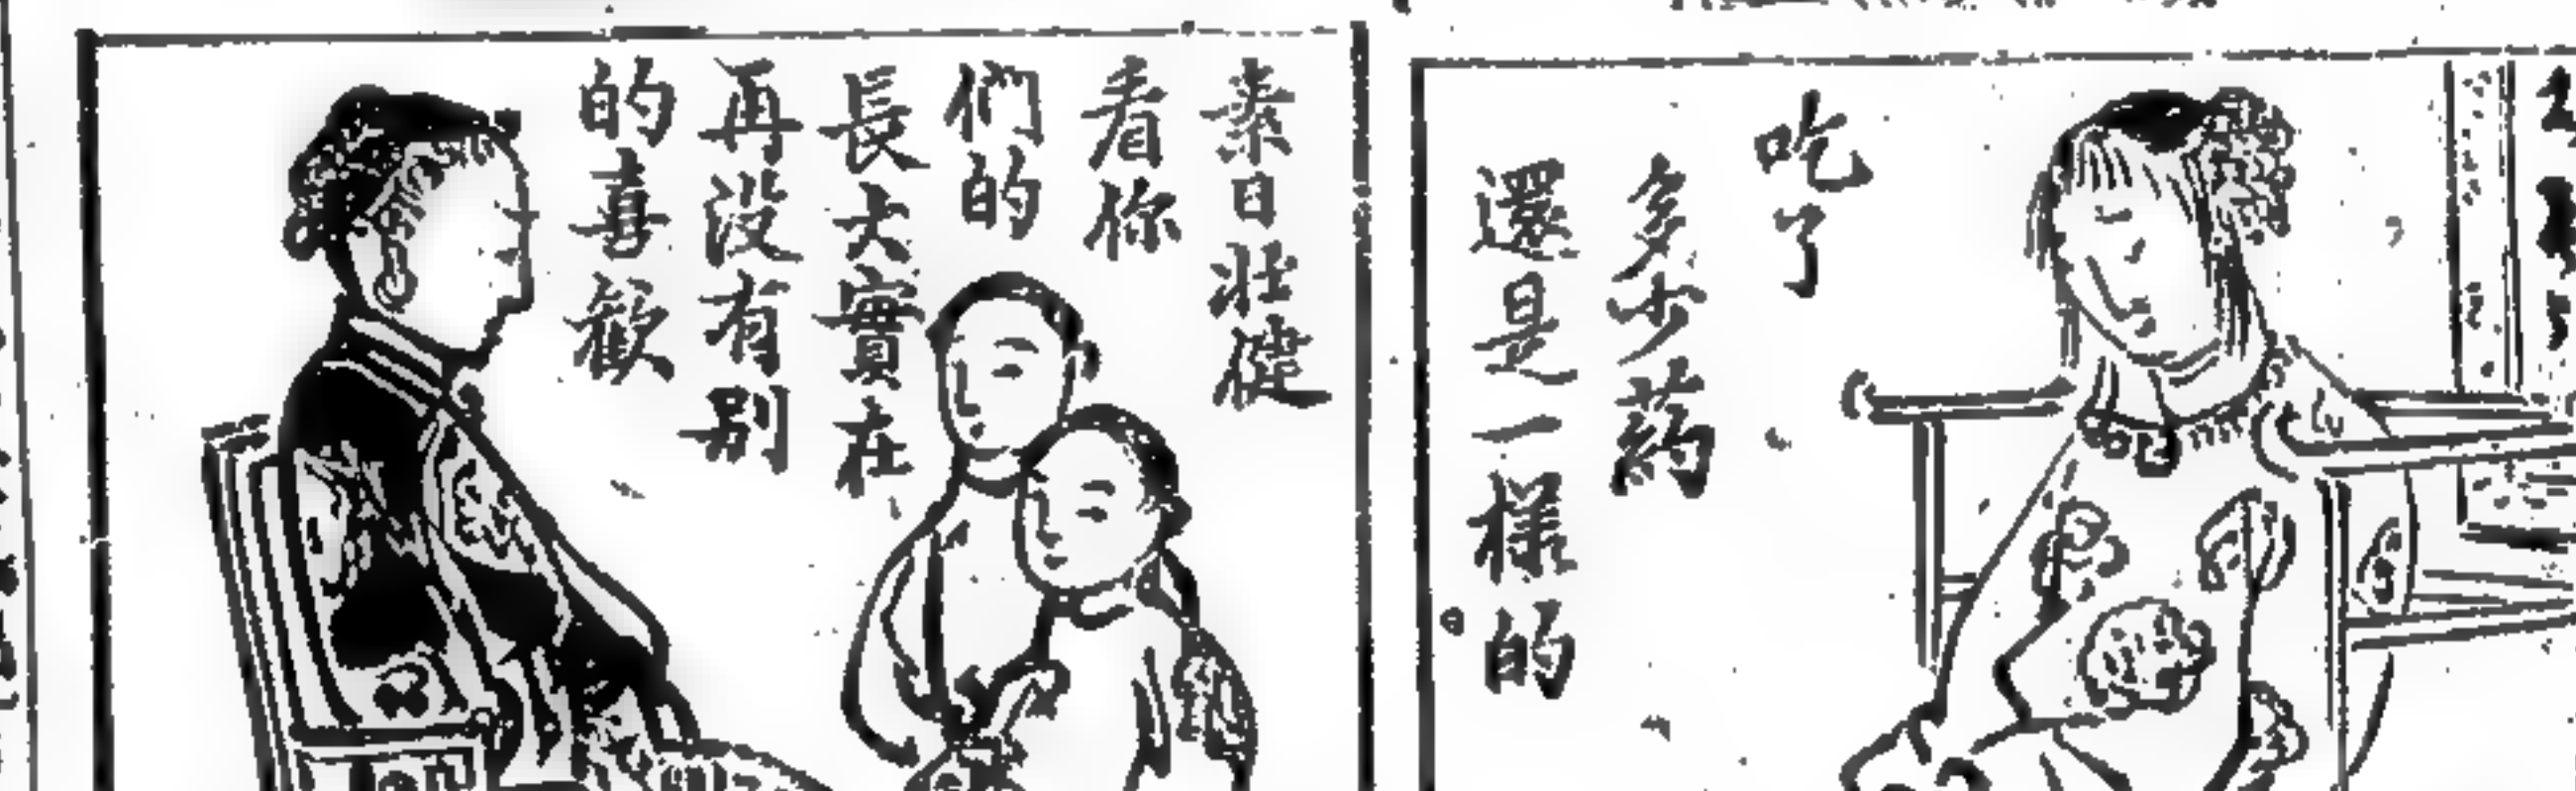 吃了
多少药
還是一樣的
素日壯健
看你
們的
長大實在
再没有别
的喜歡